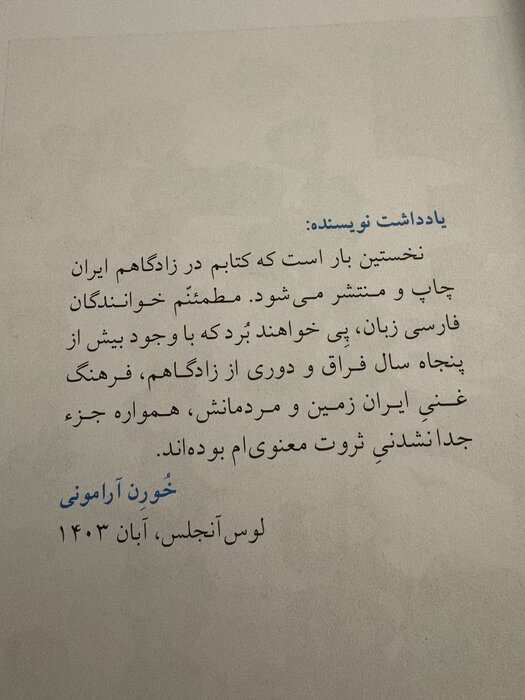 یادداشت نویسنده:
نخستین بار است که کتابم در زادگاهم ایران
چاپ و منتشر می‌شود. مطمئنّم خوانندگان
فارسی زبان، پِی خواهند بُرد که با وجود بیش از
پنجاه سال فراق و دوری از زادگاهم، فرهنگ
غنیِ ایران زمین و مردمانش، همواره جزء
جدانشدنیِ ثروت معنوی‌ام بوده‌اند.
خُورِن آرامونی
لوس‌آنجلس، آبان ۱۴۰۳